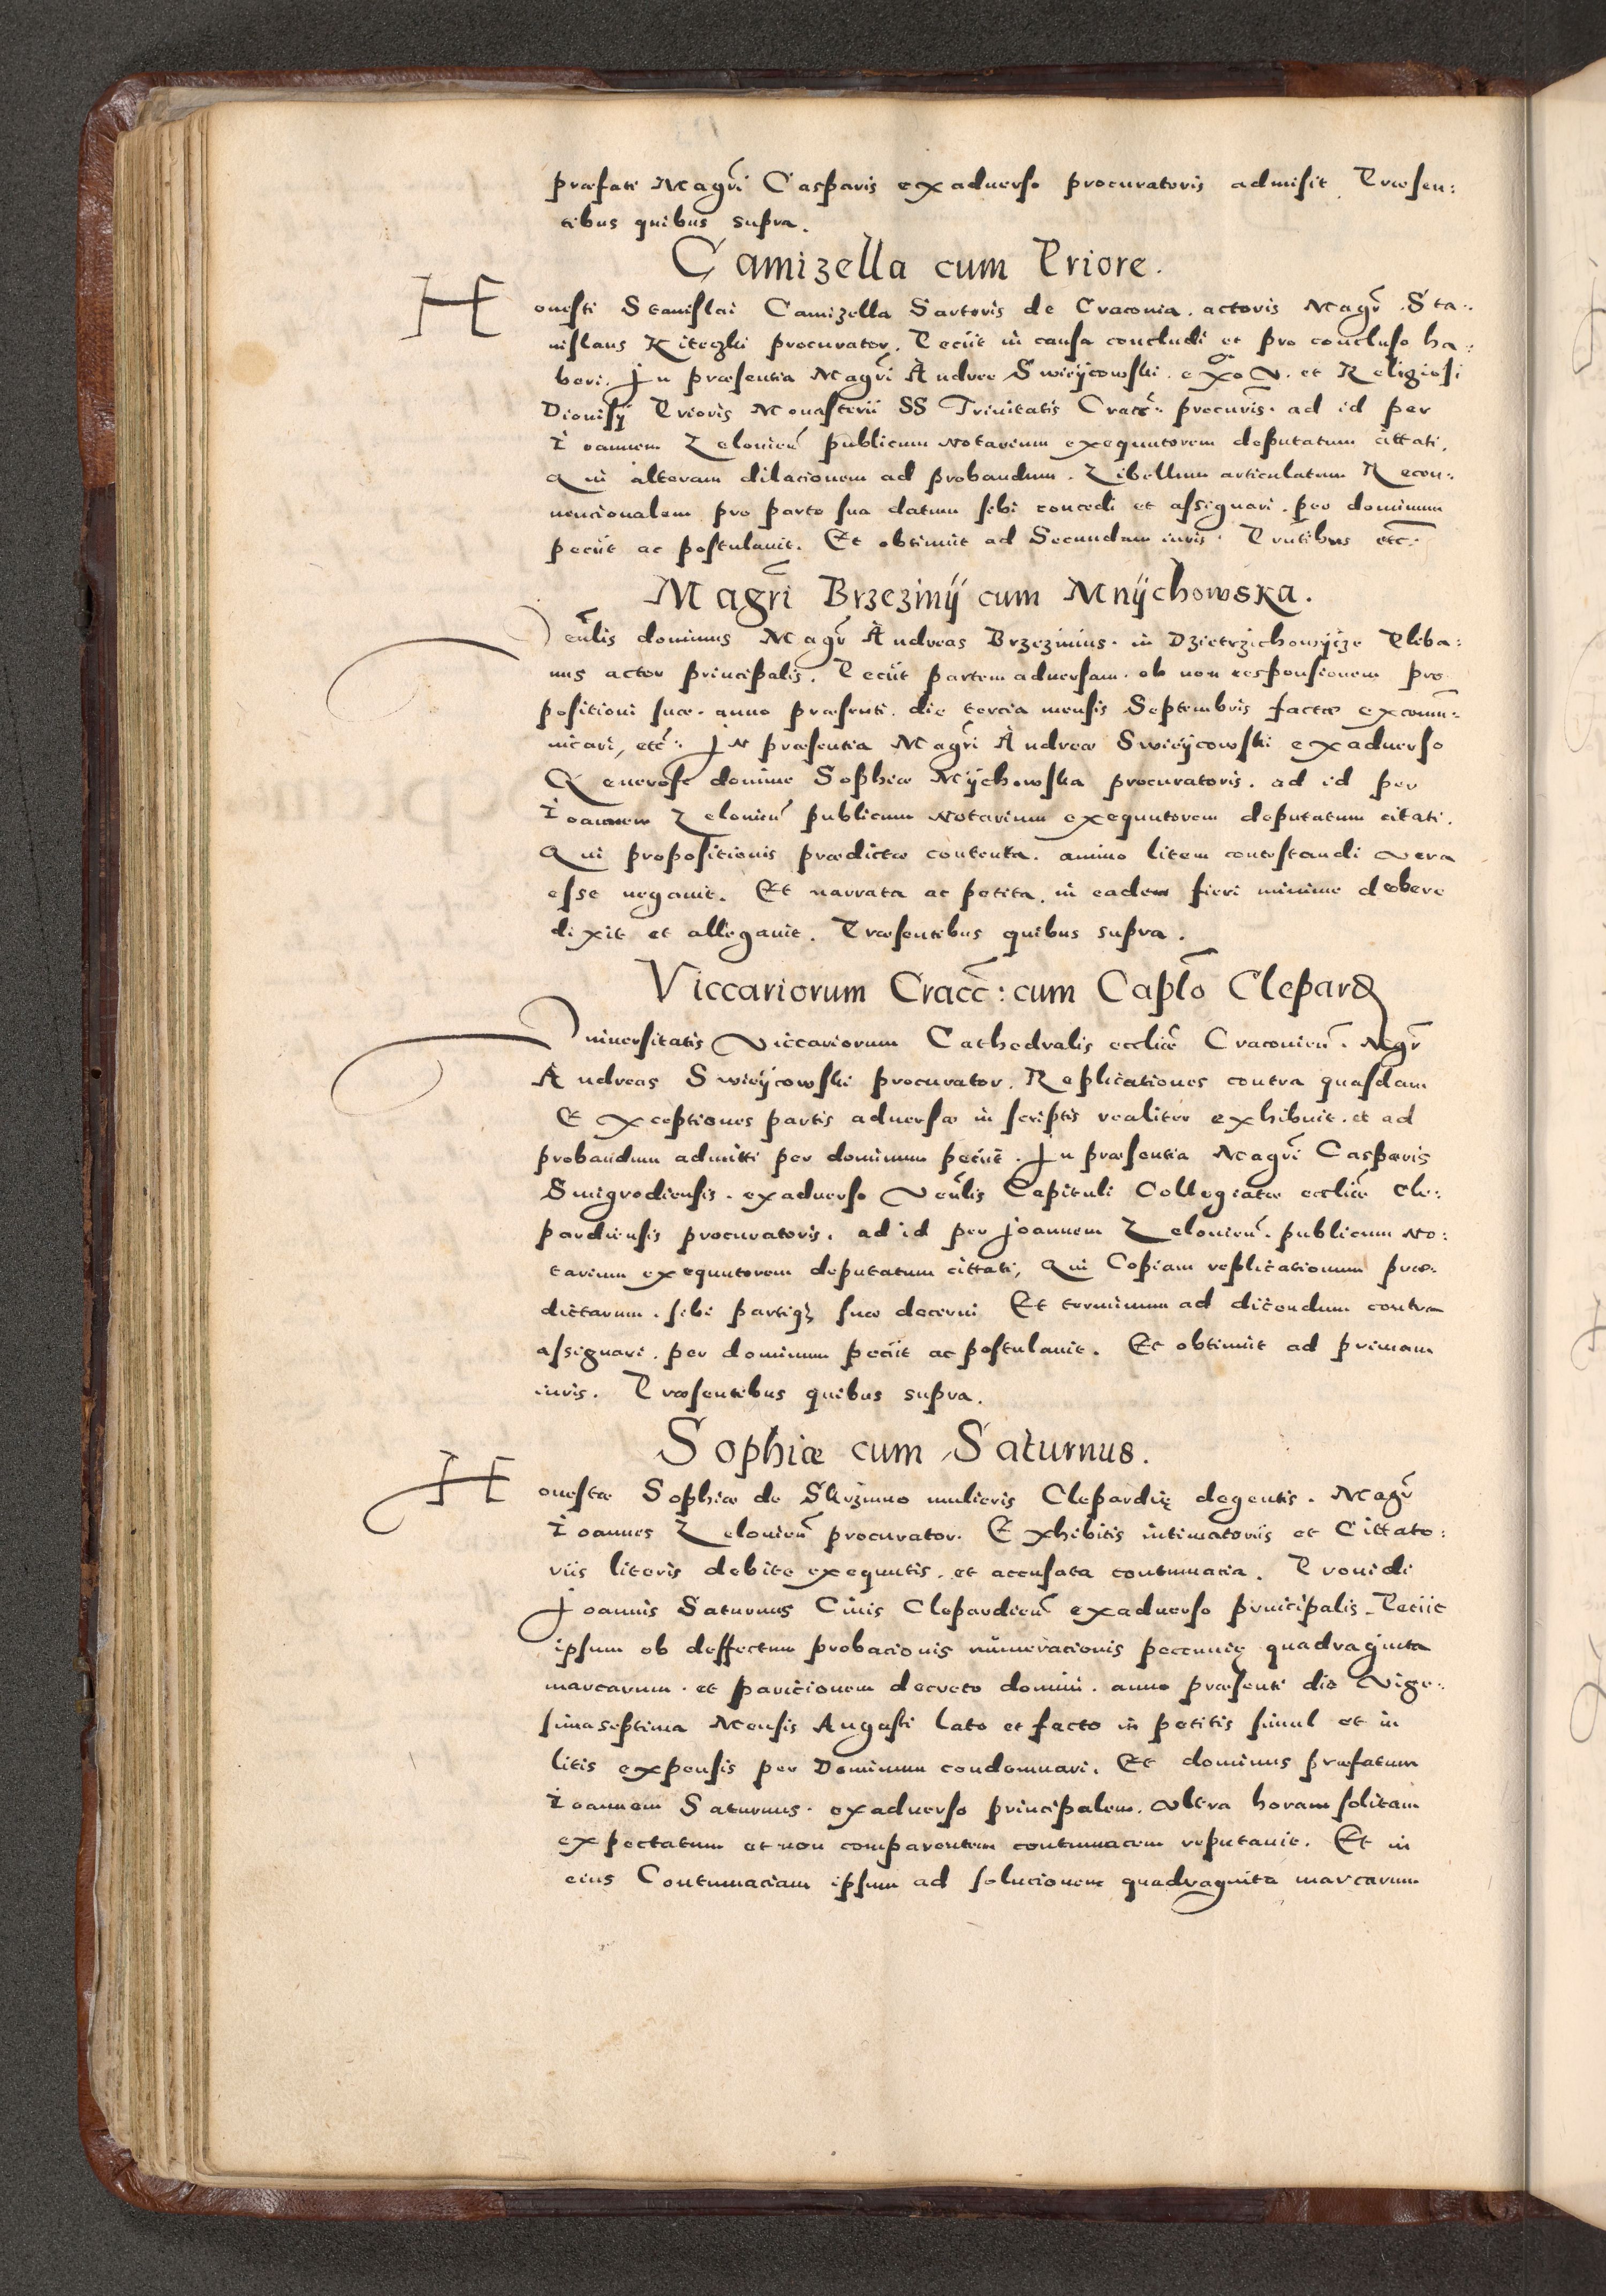 præfati Magri Casparis exaduerso procuratoris admisit. Præsen:
tibus quibus supra.
Camizella cum Priore.
Honesti Stanislai Camizella Sartoris de Craconia. actoris Magr Sta:
nislaus Kiteczki procurator. Petiit in causa concludi et pro concluso ha:
beri. Jn præsentia Magri Andree Swieycowski. et Religiosi
Dionisÿ Prioris Monasterii SS Trinitatis Cracc: procuris. ad id per
Ioannem Zelonien publicum Notarium exequutorem deputatum cittati.
Qui alteram dilacionem ad probandum. Libellum articulatum Recon:
uencionalem pro parte sua datum sibi concedi et assignari. per dominum
peciit ac postulauit. Et obtinuit ad Secundam iuris. Prntibus etc:
Magri Brzezinÿ cum Mnÿchowska.
Venlis dominus Magr Andreas Brzezinius. in Dzietrzichowÿcze Pleba:
nus actor principalis. Peciit partem aduersam. ob non responsionem pro
positioni suæ. anno præsenti. die tercia mensis Septembris factæ excomu:
nicari, etc: Jn præsentia Magri Andreæ Swieÿcowski exaduerso
Generose domine Sophiæ Mÿchowska procuratoris. ad id per
Ioannem Zelonien publicum Notarium exequutorem deputatum citati.
Qui propositionis prædictæ contenta. animo litem contestandi vera
esse negauit. Et narrata ac petita. in eadem fieri minime debere
dixit et allegauit. Præsentibus quibus supra.
Viccariorum Cracc: cum Caplo Clepard
Vniuersitatis Viccariorum Cathedralis ecclie Craconien. Mgr
Andreas Swieÿcowski procurator. Replicationes contra quasdam
Exceptiones partis aduersæ in scriptis realiter exhibuit. et ad
probandum admitti per dominum peciit. Jn præsentia Magri Casparis
Smigrodiensis. exaduerso Venlis Capituli Collegiatæ ecclie Cle:
pardiensis procuratoris. ad id per Joannem Zelonien. publicum No:
tarium exequutorem deputatum cittati, Qui Copiam replicationum præ:
dictarum. sibi partiqz suæ decerni Et terminum ad dicendum contra
assignari. per dominum peciit ac postulauit. Et obtinuit ad primam
iuris. Præsentibus quibus supra.
Sophiæ cum Saturnus.
Honestæ Sophiæ de Skrzinno mulieris Clepardię degentis. Magr
Ioannes Zelonien procurator. Exhibitis intimatoriis et Cittato:
riis literis debite exequutis. et accusata contumacia. Prouidi
Joannis Saturnus Ciuis Clepardien exaduerso principalis. Petiit
ipsum ob deffectum probacionis numeracionis peccunię quadraginta
marcarum. et paricionem decreto domini. anno præsenti die Vige:
simaseptima Mensis Augusti lato et facto in petitis simul et in
litis expensis per Dominum condemnari. Et dominus præfatum
Ioannem Saturnus. exaduerso principalem. vltra horam solitam
expectatum et non comparentem contumacem reputauit. Et in
eius Contumaciam ipsum ad solucionem quadraginta marcarum